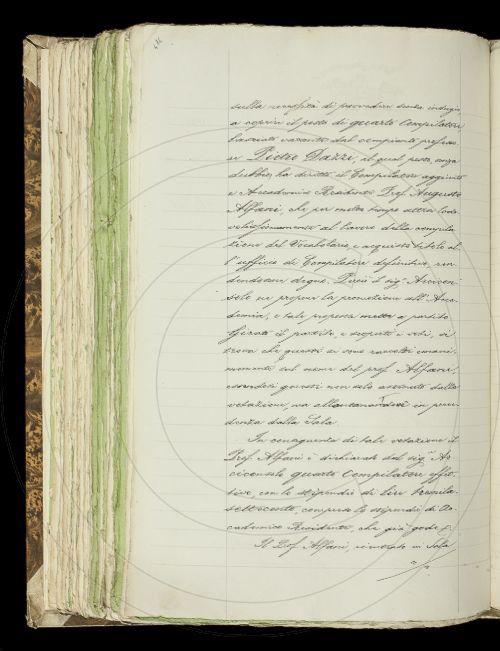 sulla necessità di provvedere senza indugio
a coprire il posto di quarto Compilatore
lasciato vacante dal compianto professo-
re Pietro Dazzi, al qual posto, senza
dubbio, ha diritto il Compilatore aggiunto
e Accademico Residente Prof. Augusto
Alfani, che per molto tempo attese lode-
volissimamente al lavoro della compila-
zione del Vocabolario, e acquistò titolo al-
l'ufficio di Compilatore definitivo, ren-
dendosene degno. Perciò il sig.r Arcicon-
solo ne propone la promozione all'Acca-
demia, e tale proposta mette a partito.
Girato il partito, e scoperti i voti, si
trova che questi si sono raccolti unani-
memente sul nome del prof. Alfani,
essendosi questi non solo astenuto dalla
votazione, ma allontanandosi in prece-
denza dalla Sala.
In conseguenza di tale votazione il
Prof. Alfani è dichiarato dal sig.r Ar-
ciconsolo quarto Compilatore effet-
tivo, con lo stipendio di lire tremila-
settecento, compreso lo stipendio di Ac-
cademico Residente, che già gode.
Il Prof. Alfani, rientrato in Sala,